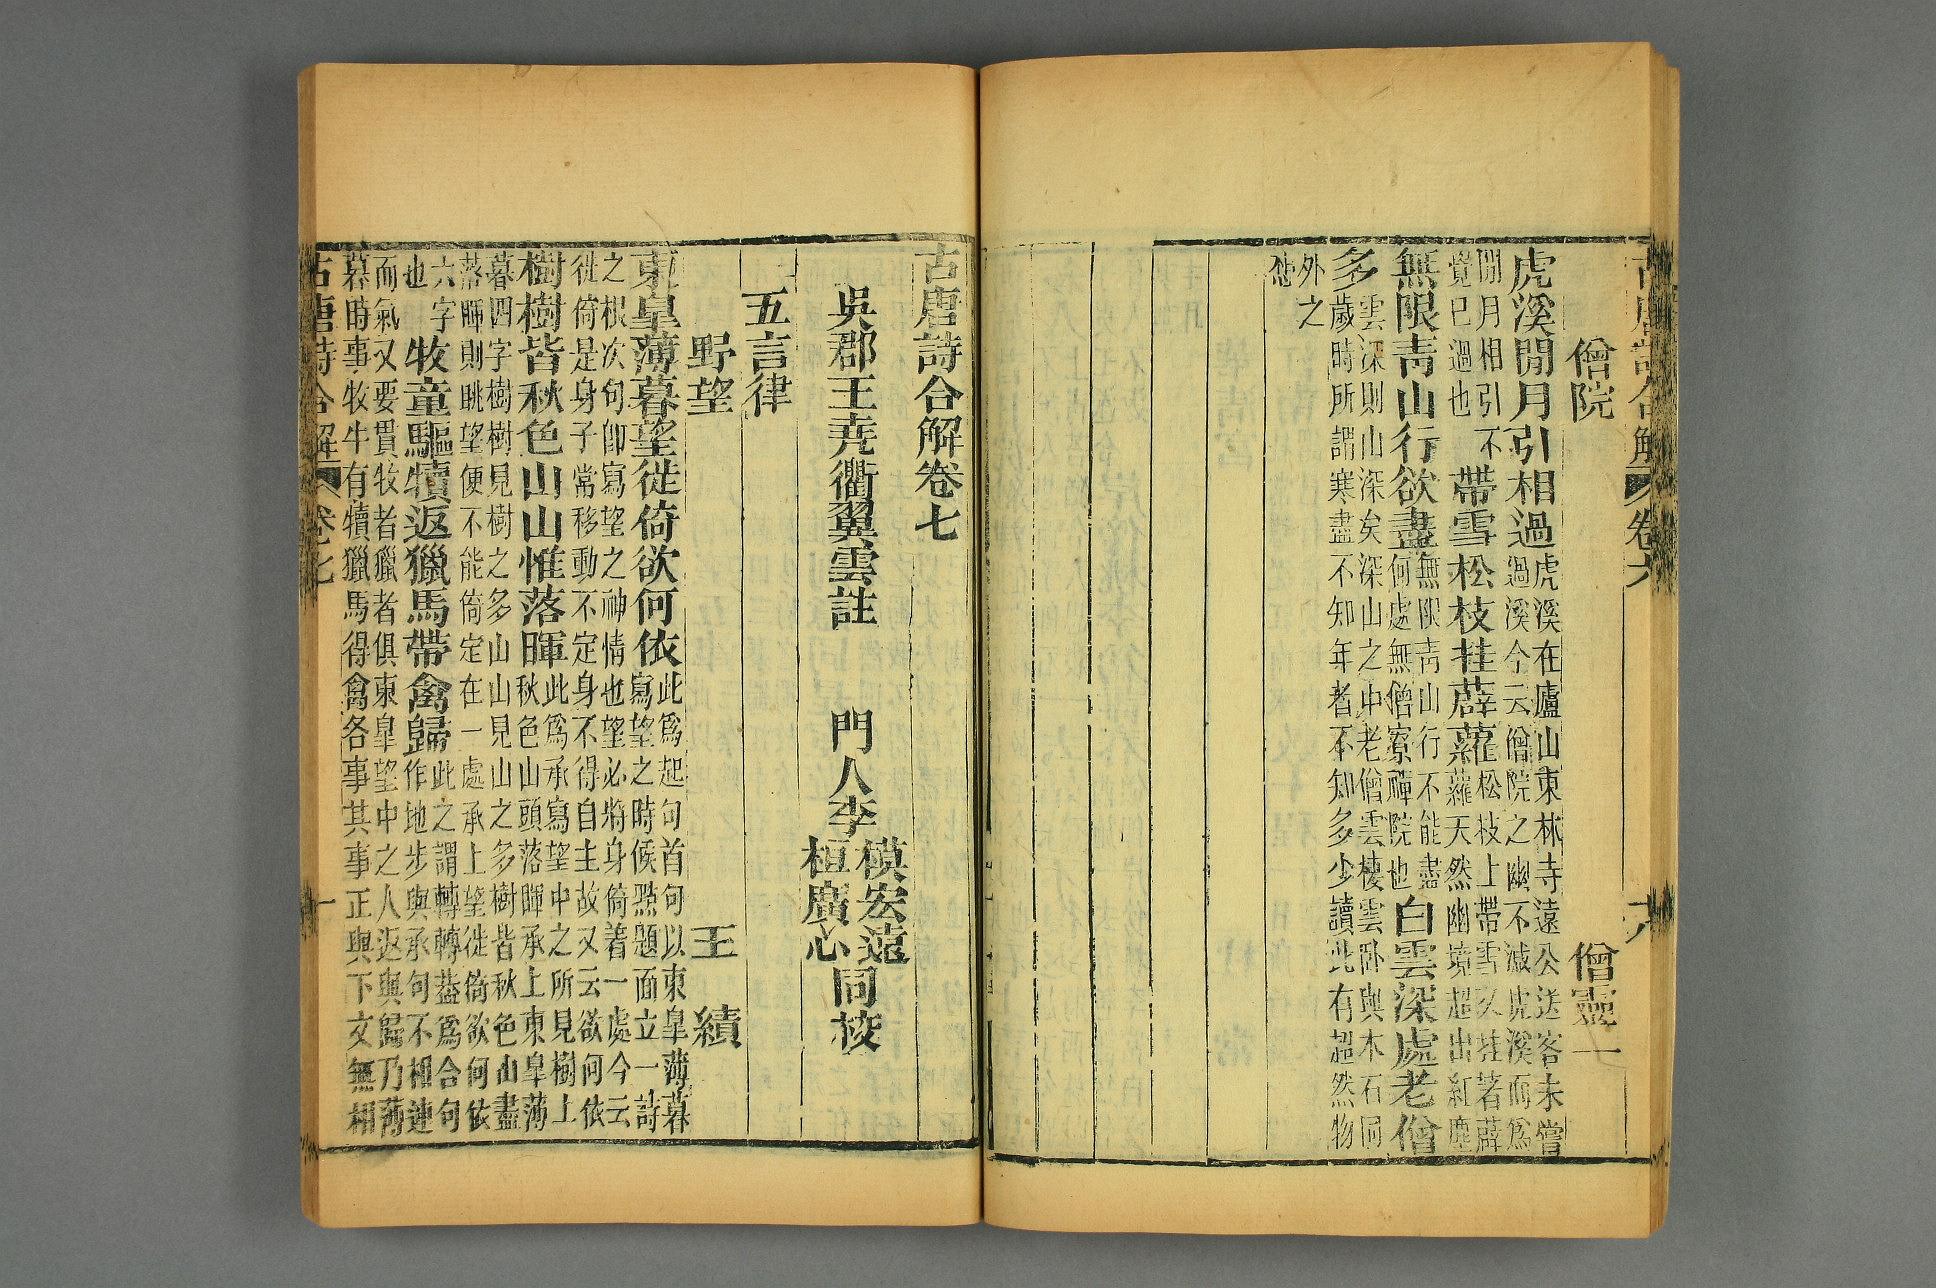 古唐詩合解 卷六 六
僧院 僧靈一
虎溪閒月引相過
虎溪在廬山東林寺遠公送客未嘗
過溪今云僧院之幽不減虎溪而爲
閒月相引不
覺已過也
帶雪松枝挂薜蘿
松枝上帶雪又挂著薜
蘿天然幽境超出紅塵
無限青山行欲盡
無限青山行不能盡
何處無僧寮禪院也
白雲深處老僧
多
雲深則山深矣深山之中老僧雲棲雲臥與木石同
歲時所謂寒盡不知年者不知多少讀此有超然物
外之
古唐詩合解卷七
吳郡王堯衢翼雲註 門人李
模宏遠
桓廣心
同校
五言律
野望 王績
東皐薄暮望徙倚欲何依
此爲起句首句以東皐薄暮
寫望之時候點題面立一詩
之根次句卽寫望之神情也望必將身倚着一處今云
徙倚是身子常移動不定身不得自主故又云欲何依
樹樹皆秋色山山惟落暉
此爲承寫望中之所見樹上
秋色山頭落暉承上東皐薄
暮四字樹樹見樹之多山山見山之多樹皆秋色山盡
落暉則眺望便不能倚定在一處承上望徙倚欲何依
六字
也
牧童驅犢返獵馬帶禽歸
此之謂轉轉葢爲合句
作地步與承句不相連
而氣又要貫牧者獵者俱東皐望中之人返與歸乃薄
暮時事牧牛有犢獵馬得禽各事其事正與下文無相
古唐詩合解 卷七 一